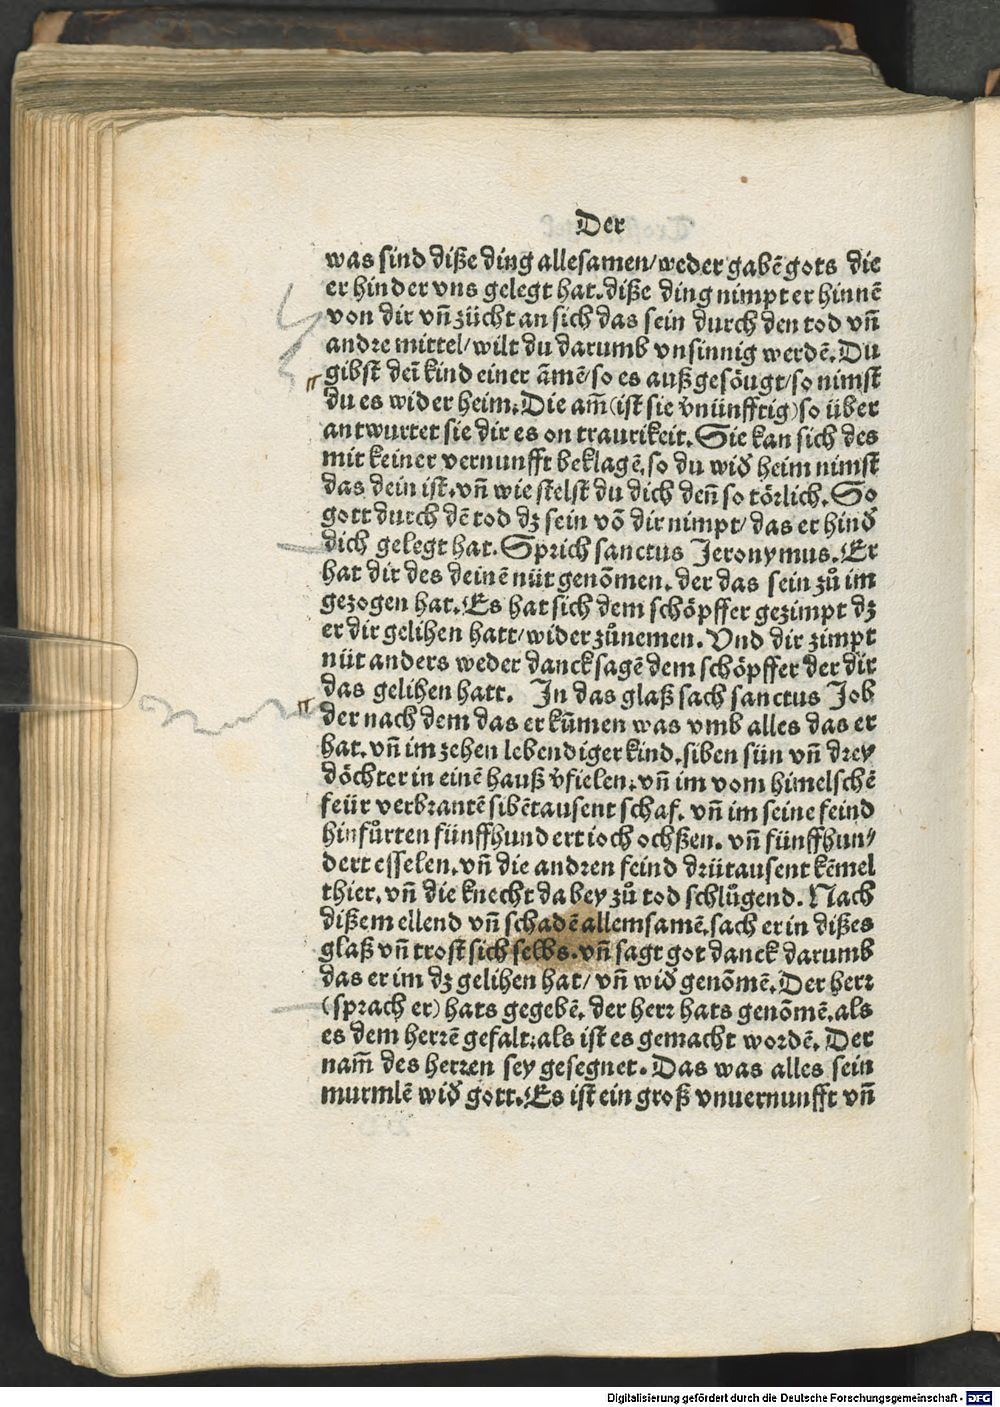 Der
was sind diße ding allesamen/weder gabē gots die
er hinder vns gelegt hat. diße ding nimpt er hinnē
von dir vñ zücht an sich das sein durch den tod vñ
andre mittel/wilt du darumb vnsinnig werdē. Du
gibst dei kind einer āmē/so es auß gesöugt/so nimst
du es wider heim. Die am̄(ist sie v̄nünfftig)so über
antwurtet sie dir es on traurikeit. Sie kan sich des
mit keiner vernunfft beklagē, so du wid̄ heim nimst
das dein ist. vñ wie stelst du dich deñ so törlich. So
gott durch dē tod dz sein vō dir nimpt/das er hind̄
dich gelegt hat. Sprich sanctus Jeronymus. Er
hat dir des deinē nüt genōmen. der das sein zů im
gezogen hat. Es hat sich dem schöpffer gezimpt dz
er dir gelihen hatt/wider zůnemen. Vnd dir zimpt
nüt anders weder danck sagē dem schöpffer der dir
das gelihen hatt. In das glaß sach sanctus Job
der nach dem das er kūmen was vmb alles das er
hat. vñ im zehen lebendiger kind. siben sün vñ drey
döchter in einē hauß v̄fielen. vñ im vom himelschē
feür verbrantē sibētausent schaf. vñ im seine feind
hinfůrten fünffhundert ioch ochßen. vñ fünffhun⸗
dert esselen. vñ die andren feind drütausent kēmel
thier. vñ die knecht da bey zů tod schlůgend. Nach
dißem ellend vñ schadē allemsamē. sach er in dißes
glaß vñ trost sich selbs. vñ sagt got danck darumb
das er im dz gelihen hat/ vñ wid̄ genōmē. Der herr
(sprach er) hats gegebē. der herr hats genōmē. als
es dem herrē gefalt. als ist es gemacht wordē. Der
nam̄ des herren sey gesegnet. Das was alles sein
murmlē wid̄ gott. Es ist ein groß vnuernunfft vñ
Digitalisierung gefördert durch die Deutsche Forschungsgemeinschaft - DFG